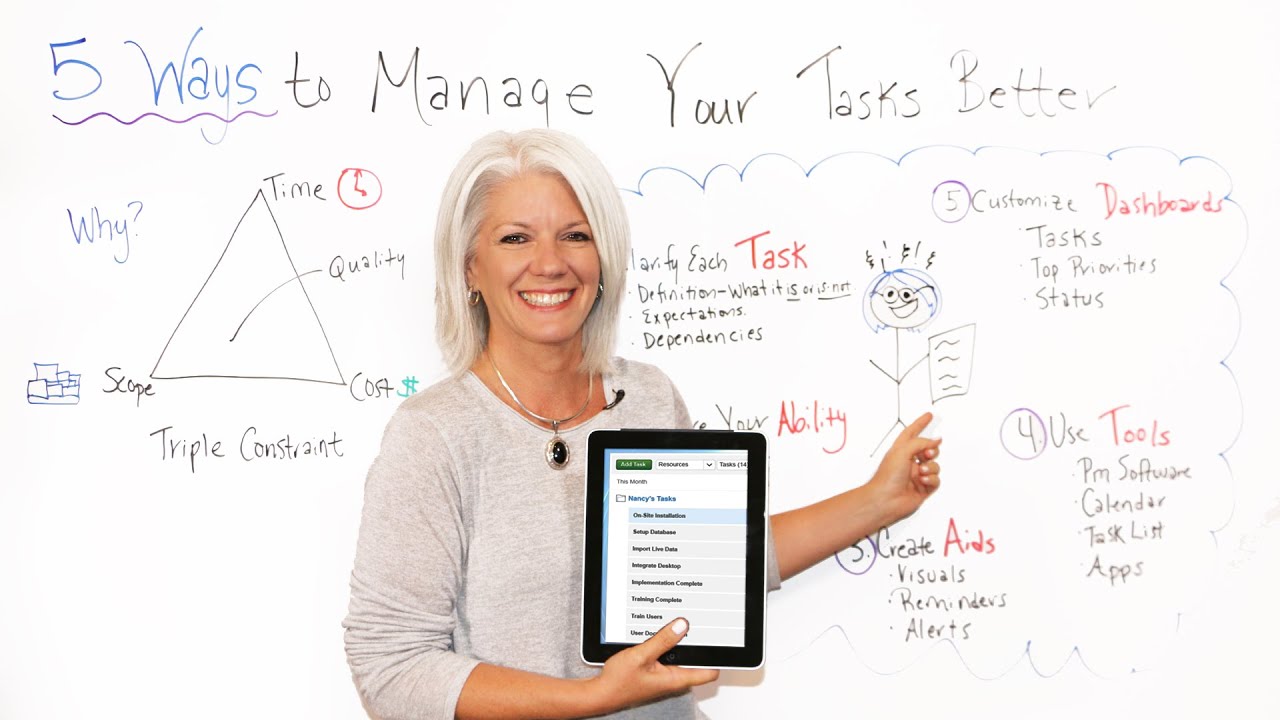 5 Ways to Manage Your Tasks Better
Why?
Time
Quality
Scope
Cost $
Triple Constraint
larify Each Task
· Definition-What it is or is not.
· Expectations.
· Dependencies
Your Ability
3. Create Aids
· Visuals
· Reminders
· Alerts
4. Use Tools
· Pm Software
· Calendar
· Task List
· Apps
5 Customize Dashboards
· Tasks
· Top Priorities
· Status
Add Task Resources Tasks (14
This Month
Nancy's Tasks
On-Site Installation
Setup Database
Import Live Data
Integrate Desktop
Implementation Complete
Training Complete
Train Users
User Doc